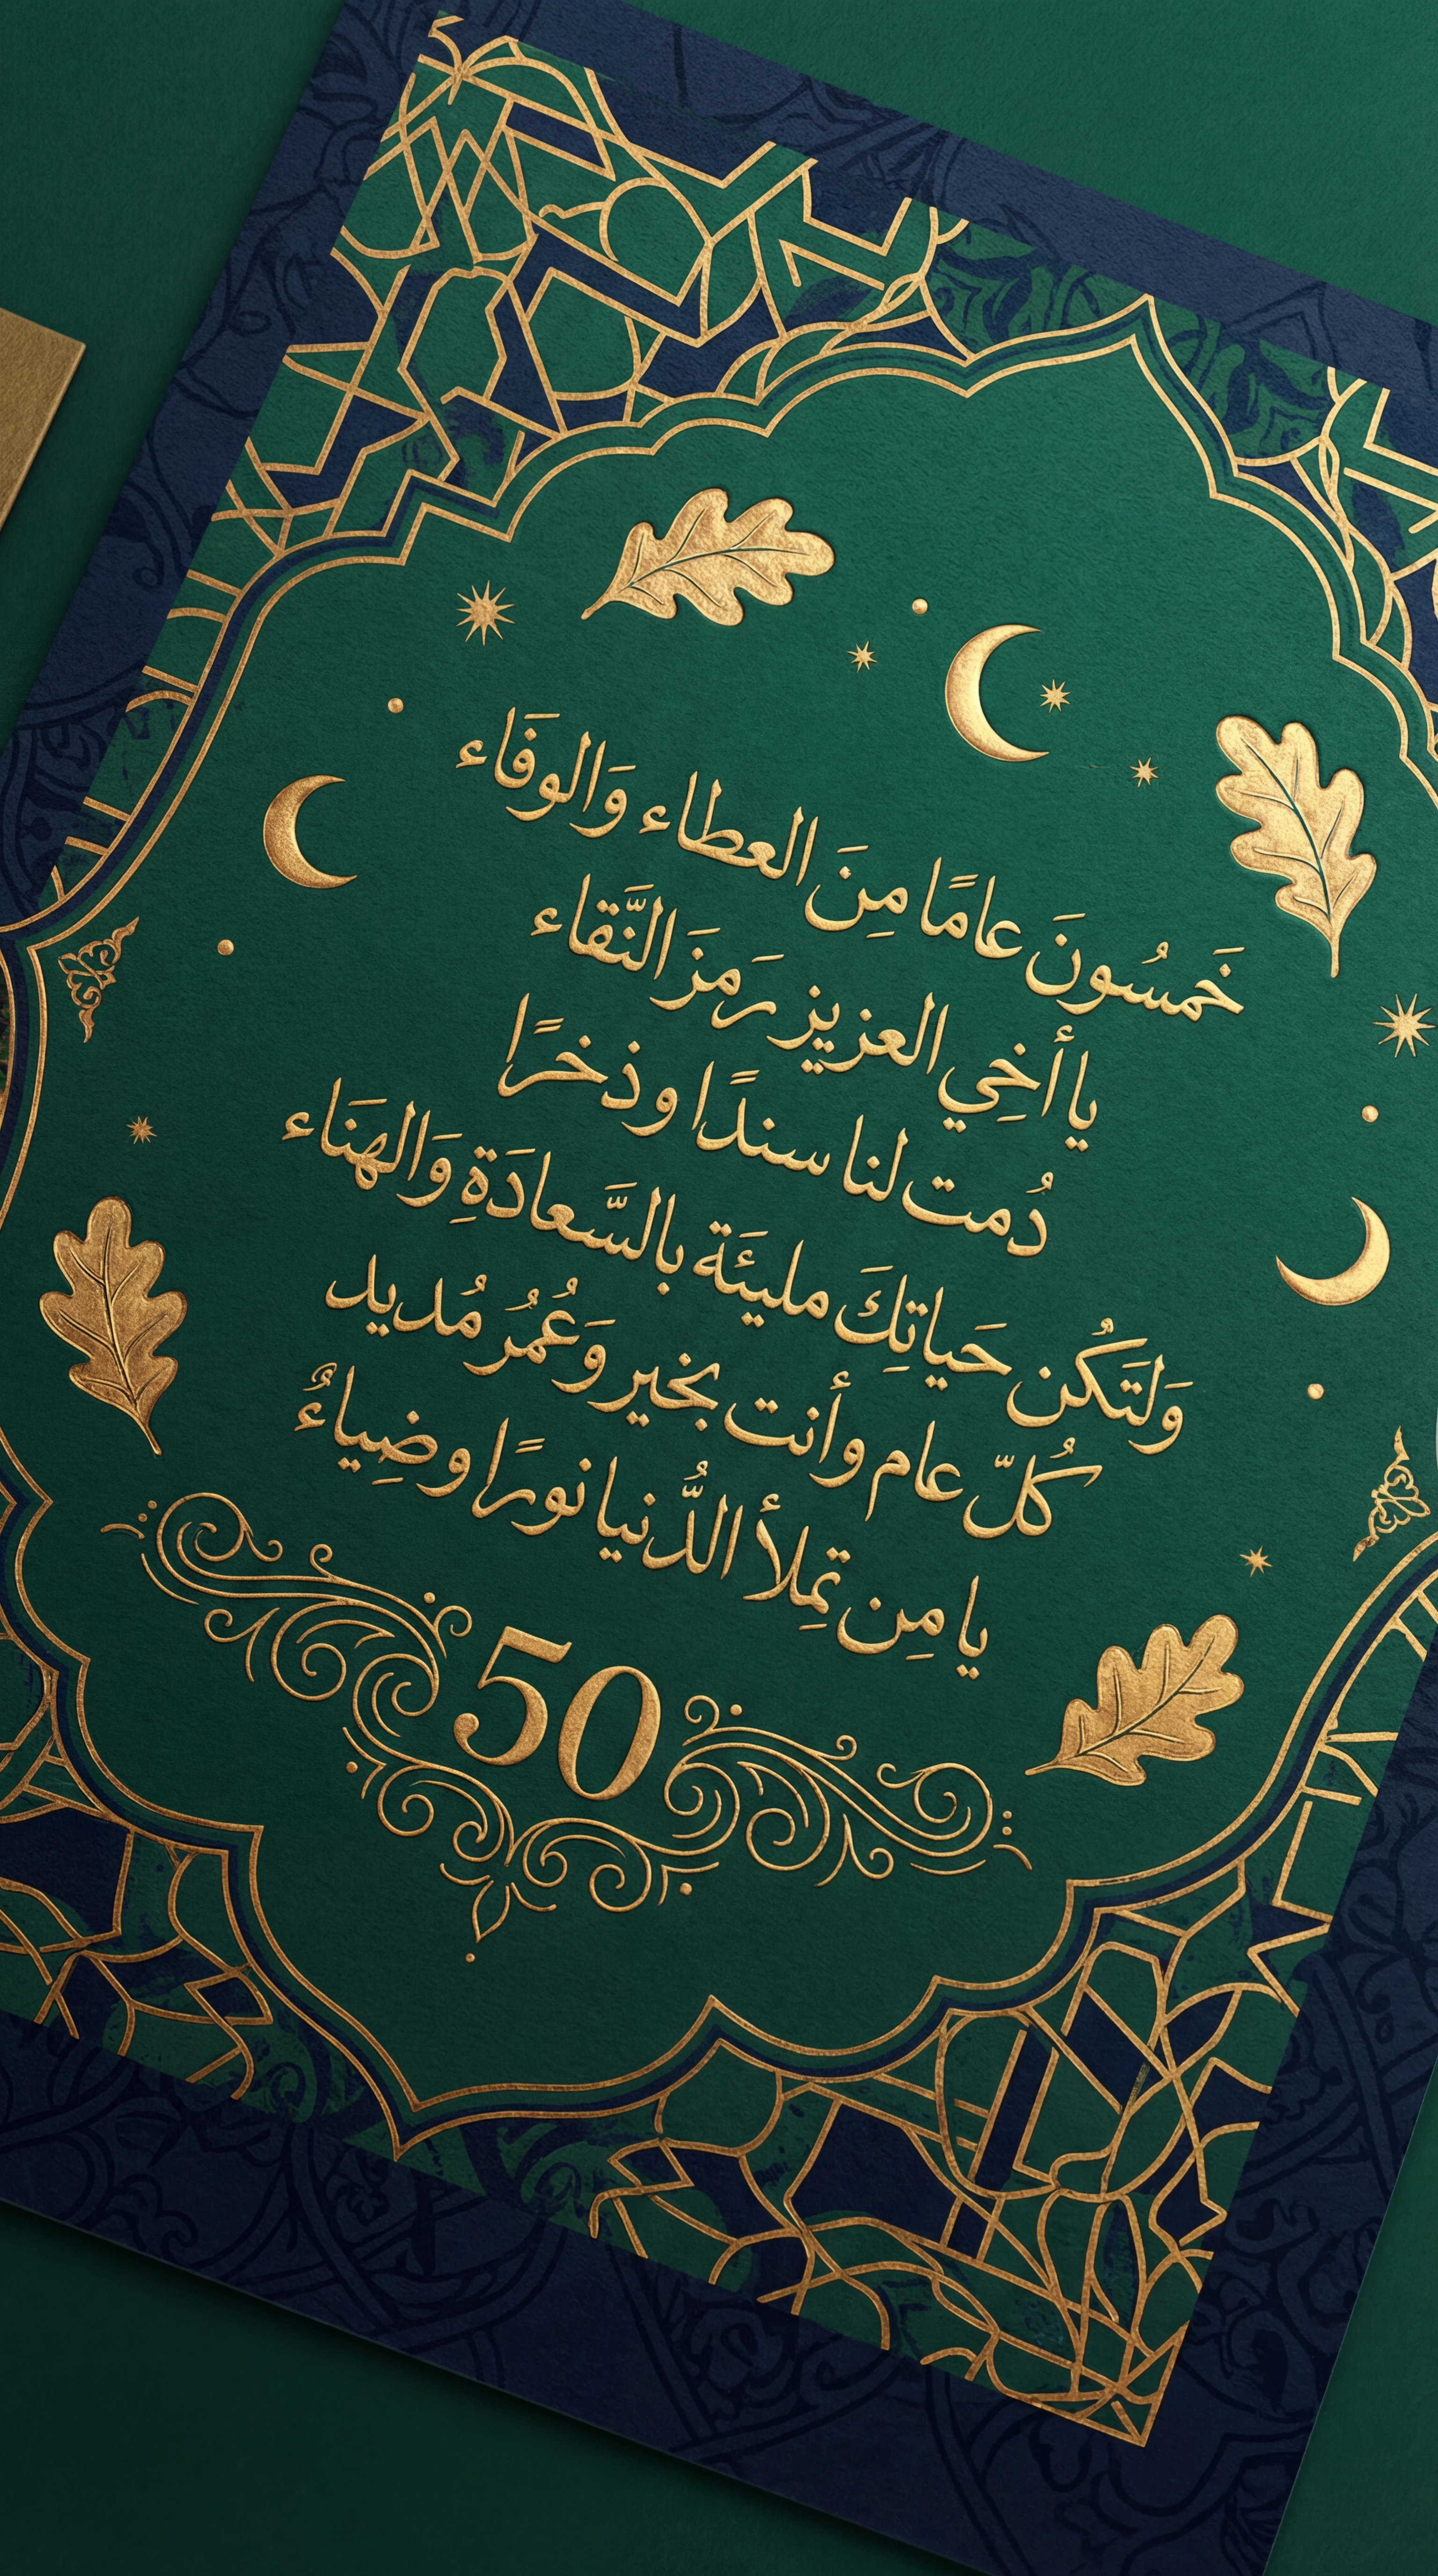 خَمسُونَ عامًا مِنَ العطاء وَالوفَاء
يا أخِي العزيز رَمزَ النَّقاء
دُمت لنا سندًا وذخرًا
وَلتَكُن حَياتِكَ مليئَة بالسَّعادَةِ وَالهنَاء
كُلّ عام وأنت بخير وَعُمُر مُديد
يا مِن تمِلأ الدُّنيا نورًا وضِياءُ
50